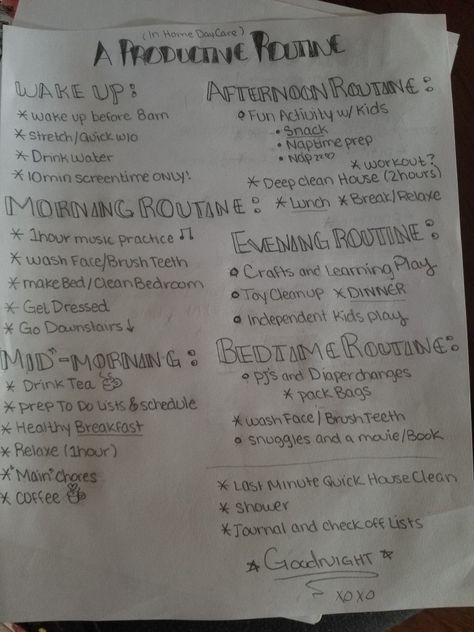 (In Home DayCare)
A PRODUCTIVE ROUTINE
WAKE UP:
* wake up before 8am
* Stretch/Quick w/o
* Drink water
* 10min screentime ONLY!
MORNING ROUTINE:
* 1hour music practice ♫
* wash Face/Brush Teeth
* make Bed/Clean Bedroom
* Get Dressed
* Go Downstairs ↓
MID-MORNING:
* Drink Tea
* prep To Do Lists & schedule
* Healthy Breakfast
* Relaxe (1hour)
* "Main" Chores
* Coffee
AFTERNOON ROUTINE:
o Fun Activity w/ Kids
• Snack
• Naptime prep
• Nap
* workout?
* Deep clean House (2hours)
* Lunch * Break/Relaxe
EVENING ROUTINE:
o Crafts and Learning Play
o Toy Cleanup * DINNER
o Independent Kids play
BEDTIME ROUTINE:
o PJ's and Diaper changes
* pack Bags
* wash Face/Brush Teeth
o snuggles and a movie/Book
* Last Minute Quick House Clean
* Shower
* Journal and check off Lists
☆ GOODNIGHT ☆
xoxo